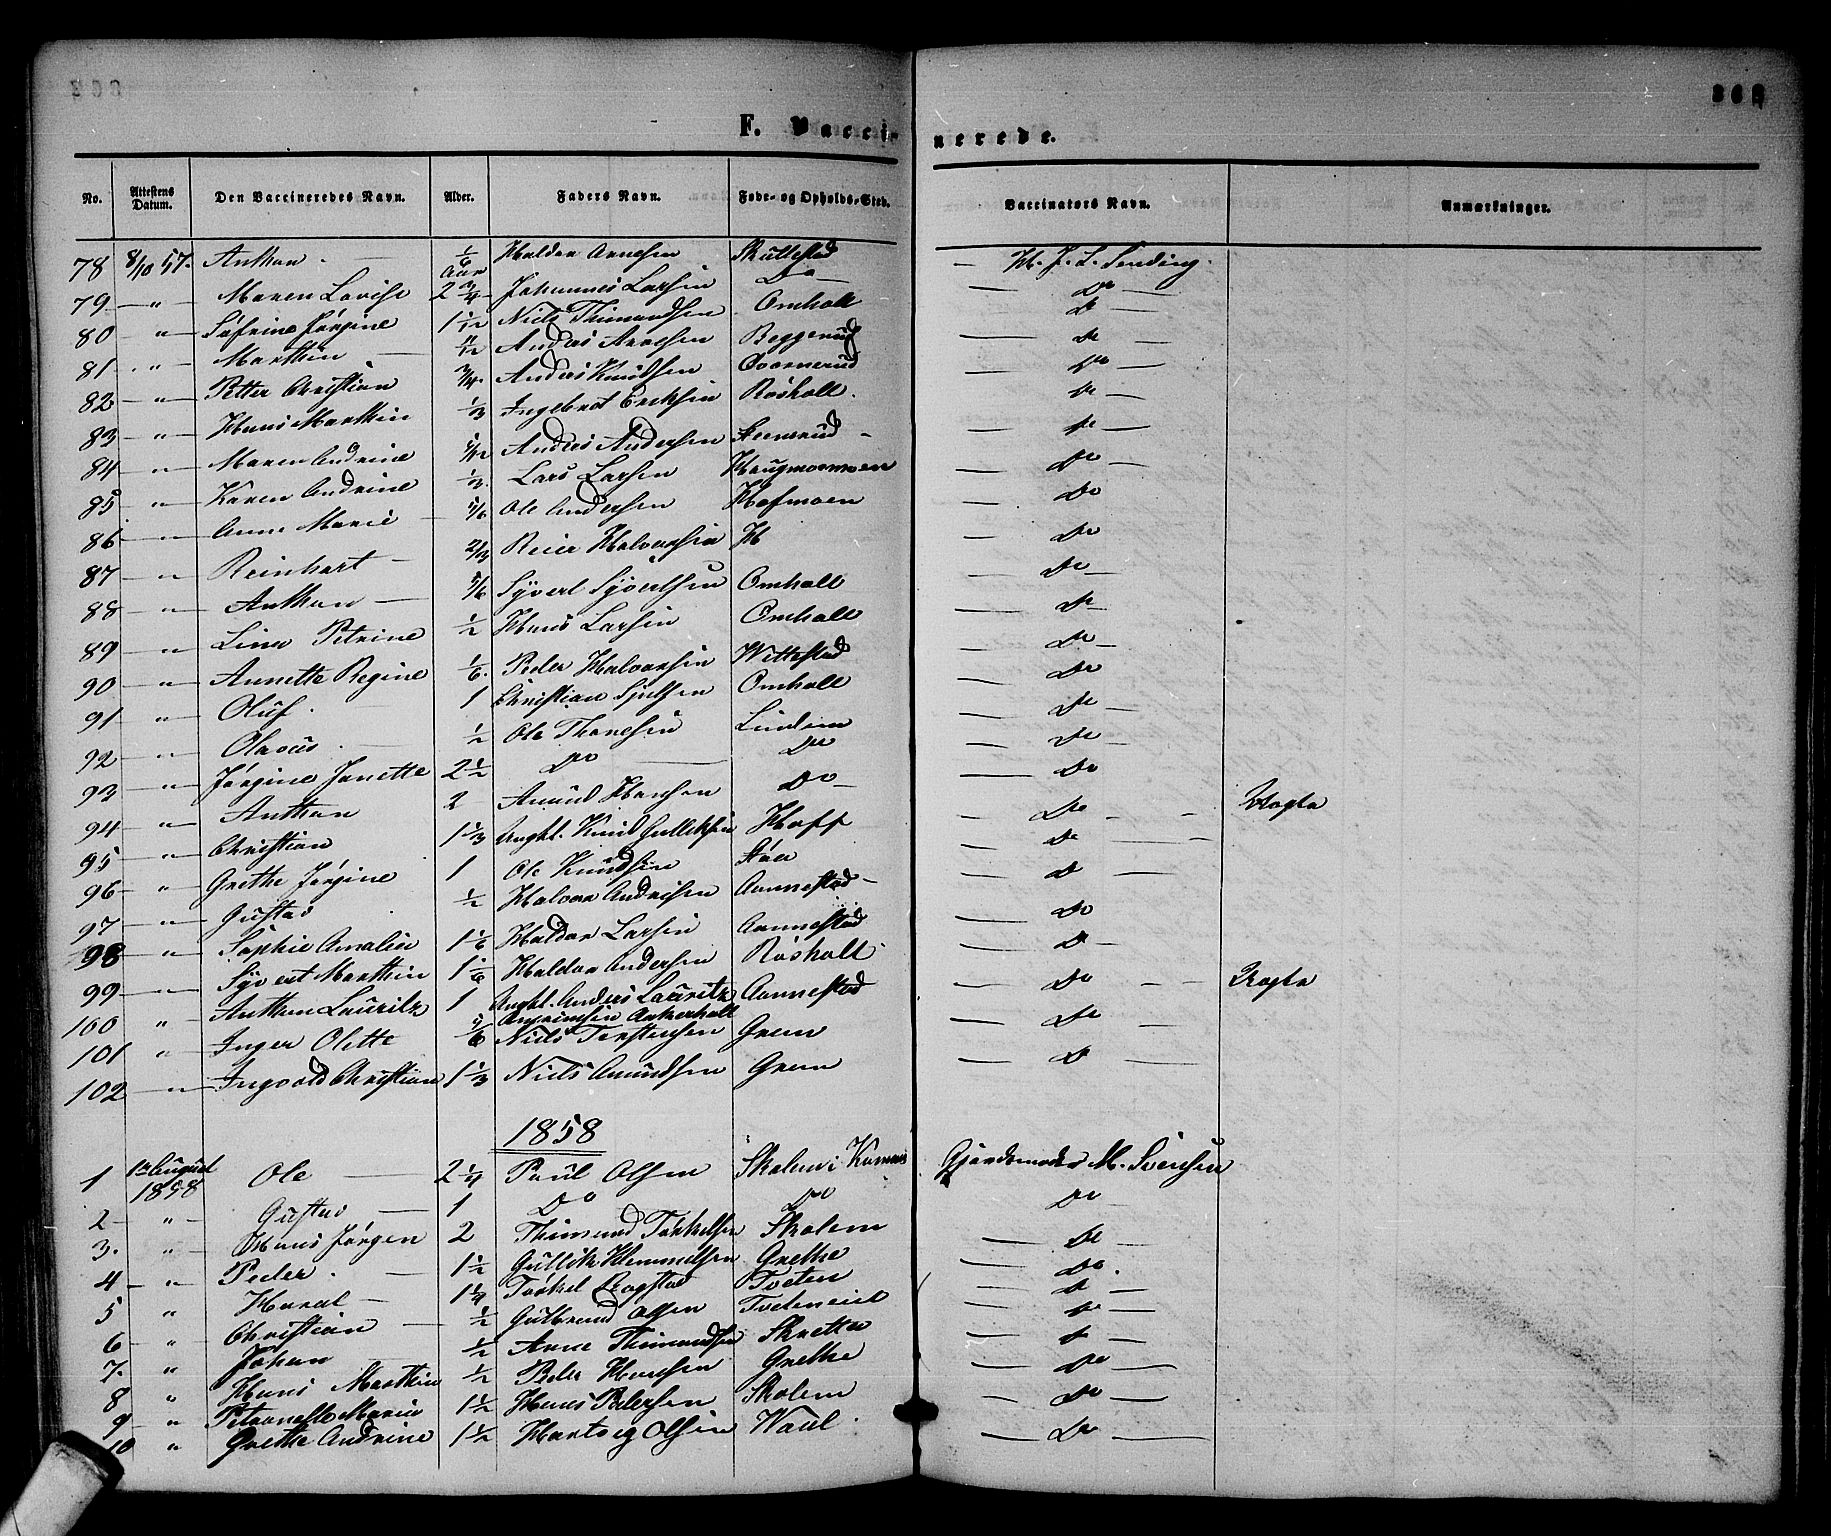 F. Vaccinerede.
No. Attestens Datum. Den Vaccineredes Navn. Alder. Faders Navn. Føde- og Opholds-Sted. Vaccinators Navn. Anmærkninger.
78 8/10 57. Anthon 1/6 Aar Haldor Arnesen Skullestad
79 " Maren Lovise 2 3/4 Johannes Larsen Do Do
80 " Sofrine Jørgine 1 1/12 Niels Thimandsen Omholt Do
81 " Marthin Anders Arnesen Do
82 " Petter Christian 3/4 Anders Knudsen Do
83 " Hans Marthin 1/3 Ingebret Ericksen Røsholt Do
84 " Maren Andrine Anders Andersen Steensrud Do
85 " Karen Andrine 1/3 Lars Larsen Haugmoenmoen Do
86 " Anne Marie 5/6 Ole Andersen Hofmoen Do
87 " Reinhart 2/3 Reier Halvorsen H Do
88 " Anthon 5/6 Syvert Syvertsen Omholt Do
89 " Lina Petrine 1/2 Hans Larsen Omholt Do
90 " Annette Regine 1/6 Peder Halvorsen Wittestad Do
91 " Oluf 1 Christian Omholt Do
92 " Olavus 1/2 Ole Do
93 " Jørgine Janette 2 1/2 Do Do Do
94 " Anthon 2 Amund Hansen Do Do
95 " Christian 1 1/3 Ungkl. Knud Gulliksen Hoff Do Uægte
96 " Grethe Jørgine 1 Ole Knudsen Støa Do
97 " Gustav 1/2 Halvor Andersen Aannestad Do
98 " Sophie Amalie 1 1/6 Haldor Larsen Aannestad Do
99 " Syvert Marthin 1 1/6 Haldor Andersen Røsholt Do
100 " Anthon Lauritz 1 Ungkl. Anders Lauritz Aannestad Do Uægte
101 " Inger Olette 5/6 Niels Terstensen Grem Do
102 " Ingvald Christian 1 1/3 Niels Amundsen Grem Do
1858
1 1te August 1858 Ole 2 1/4 Paul Olsen Gjordemoder M. Svensen
2 " Gustav 1 Do Do Do
3. " Hans Jørgen 2 Thimund Tørkelsen Skolem Do
4 " Peder 1 1/2 Gullik Klemmetsen Grethe Do
5 " Haral 1 1/4 Tørkel Tveten Do
6 " Christian 1/2 Gulbrand Olsen Tveteneiet Do
7. " Johan 1/2 Arne Thimandsen Skretta Do
8 " Hans Marthin 1/2 Peder Hansen Grethe Do
9 " Petronelle Maria 1 1/2 Hans Pedersen Skolem Do
10 " Grethe Andrine 1 1/2 Hartvig Olsen Do